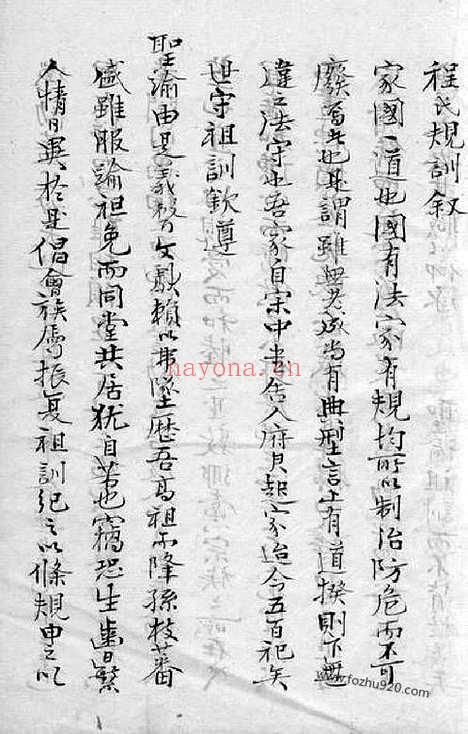 程氏規訓叙
家國一道也國有法家有規均所以制治防危而不可
廢者也語謂雖無老成尚有典型言上有道揆則下無
違法守也吾家自宋中書舍人府君起家迨今五百祀矣
世守祖訓欽遵
聖諭由是義發文獻賴以弗墜歷吾高祖而降孫枝蕃
盛雖服諭袒免而同堂共居犹自若也竊恐生齒日繁
人情日異於是倡會族属振复祖訓紀之以條規申之以
hayona.cn
www.fozhu920.com